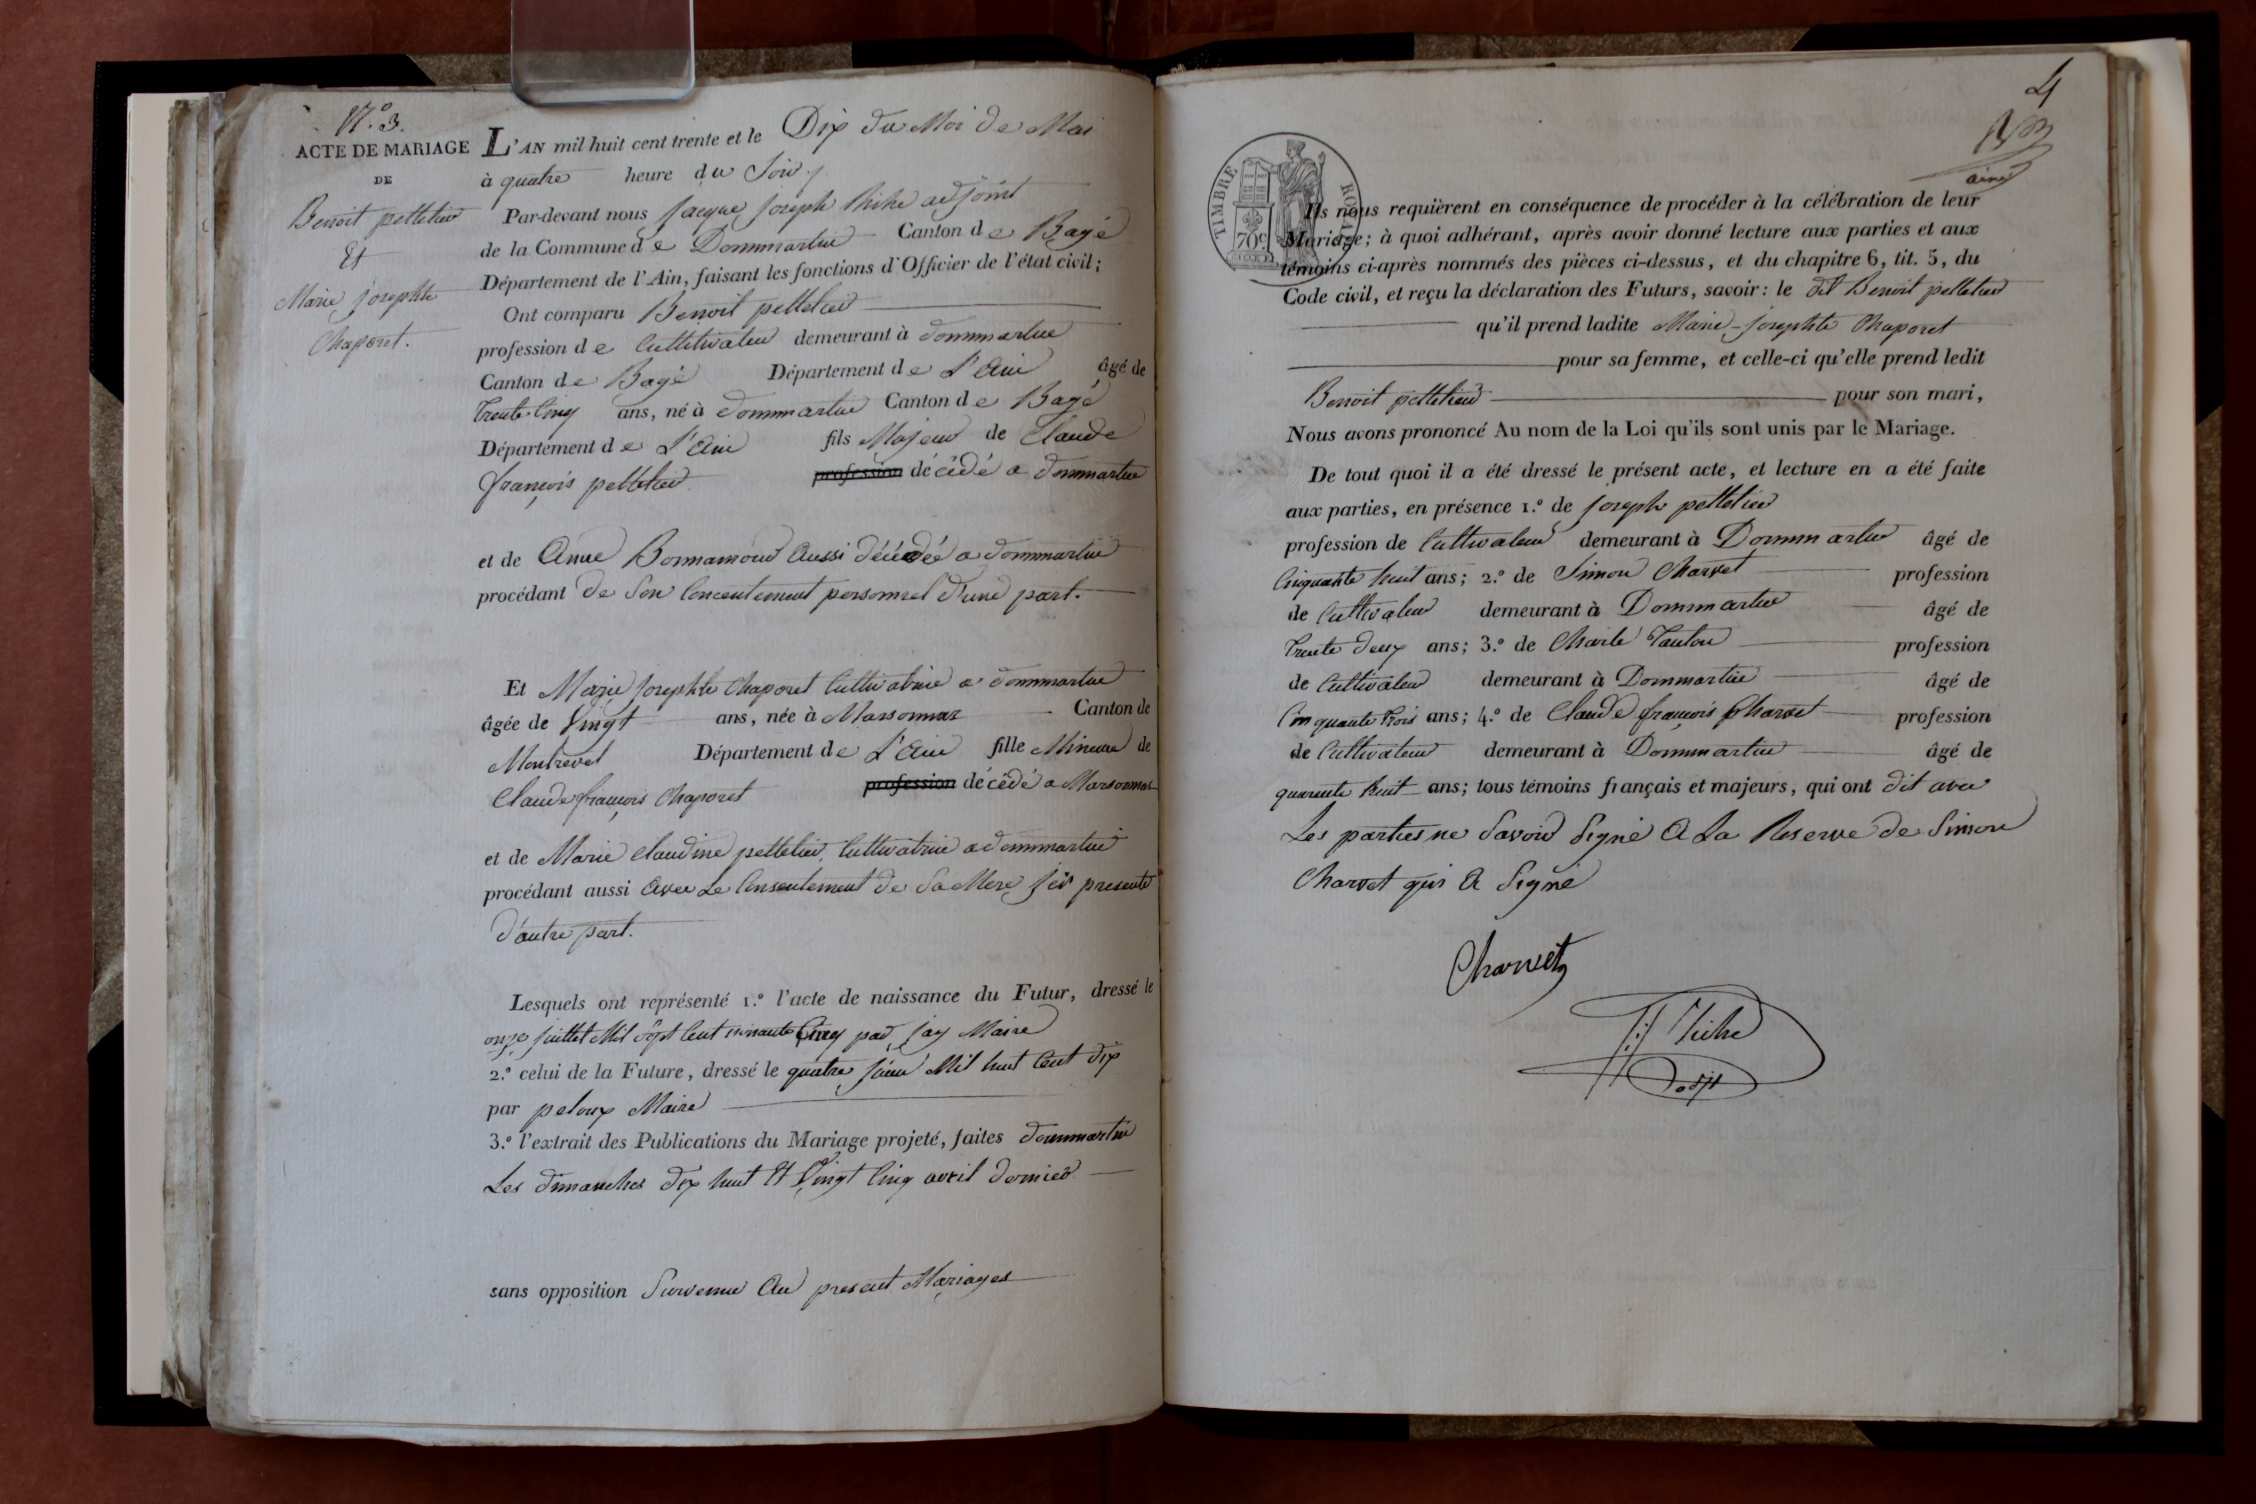 N.o 3.
ACTE DE MARIAGE
DE
Benoit pelletier
Et
Marie josephte
Chaporet.
L'AN mil huit cent trente et le Dix du Moi de Mai
à quatre heure du Soir
Par-devant nous jacque joseph adjoint
de la Commune de Dommartin Canton de Bagé
Département de l'Ain, faisant les fonctions d'Officier de l'état civil;
Ont comparu Benoit pelletier
profession de Cultivateur demeurant à dommartin
Canton de Bagé Département de L'Ain âgé de
trente Cinq ans, né à dommartin Canton de Bagé
Département de L'Ain fils Majeur de Claude
françois pelletier profession décédé a dommartin
et de Anne Bonnamour Aussi décédée a dommartin
procédant de Son Concentement personnel d'une part.
Et Marie josephte Chaporet Cultivatrice a dommartin
âgée de Vingt ans, née à Marsonnas Canton de
Montrevel Département de L'Ain fille Mineure de
Claude françois Chaporet profession décédé a Marsonnas
et de Marie Claudine pelletier, Cultivatrice a dommartin
procédant aussi Avec Le Consentement de Sa Mere ici presente
d'autre part.
Lesquels ont représenté 1.o l'acte de naissance du Futur, dressé le
onze juillet Mil Sept Cent nonante Cinq par jay Maire
2.o celui de la Future, dressé le quatre Mil huit Cent dix
par peloux Maire
3.o l'extrait des Publications du Mariage projeté, faites dommartin
Les dimanches dix huit Et Vingt Cinq avril dernier
sans opposition Survenue Au present Mariages
4
TIMBRE ROYAL
70c
Ils nous requièrent en conséquence de procéder à la célébration de leur
Mariage; à quoi adhérant, après avoir donné lecture aux parties et aux
témoins ci-après nommés des pièces ci-dessus, et du chapitre 6, tit. 5, du
Code civil, et reçu la déclaration des Futurs, savoir: le dit Benoit pelletier
qu'il prend ladite Marie-josephte Chaporet
pour sa femme, et celle-ci qu'elle prend ledit
Benoit pelletier pour son mari,
Nous avons prononcé Au nom de la Loi qu'ils sont unis par le Mariage.
De tout quoi il a été dressé le présent acte, et lecture en a été faite
aux parties, en présence 1.o de joseph pelletier
profession de Cultivateur demeurant à Dommartin âgé de
Cinquante huit ans; 2.o de Simon Charvet profession
de Cultivateur demeurant à Dommartin âgé de
trente deux ans; 3.o de Charle profession
de Cultivateur demeurant à Dommartin âgé de
Cinquante trois ans; 4.o de Claude françois Charvet profession
de Cultivateur demeurant à Dommartin âgé de
quarente huit ans; tous témoins français et majeurs, qui ont dit avec
Les parties ne Savoir Signé A La Reserve de Simon
Charvet qui A Signé
Charvet
adjt